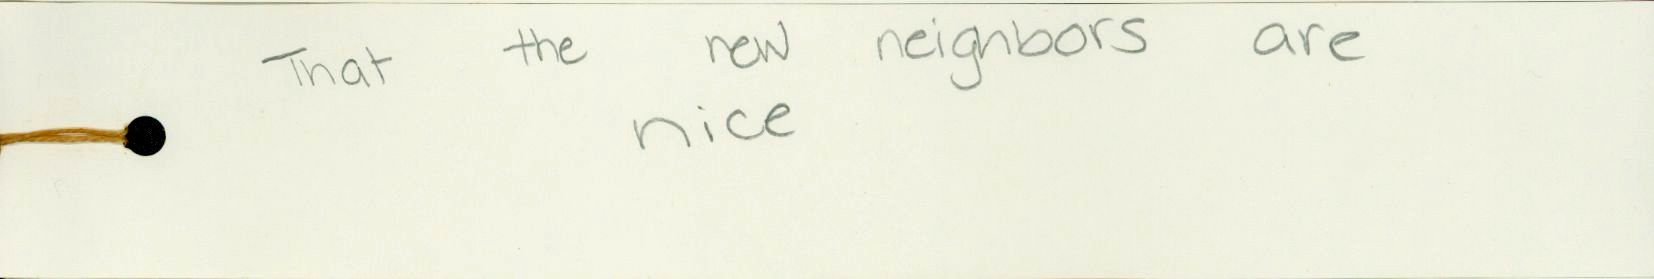 That the new neighbors are
nice